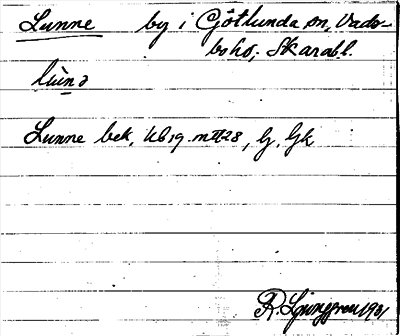 Lunne by i Götlunda sn, Vads-
bo hd, Skarabl.
lùnə
Lunne bek, Kb 19. m II 28, G, Gk
R. Ljunggren 1931